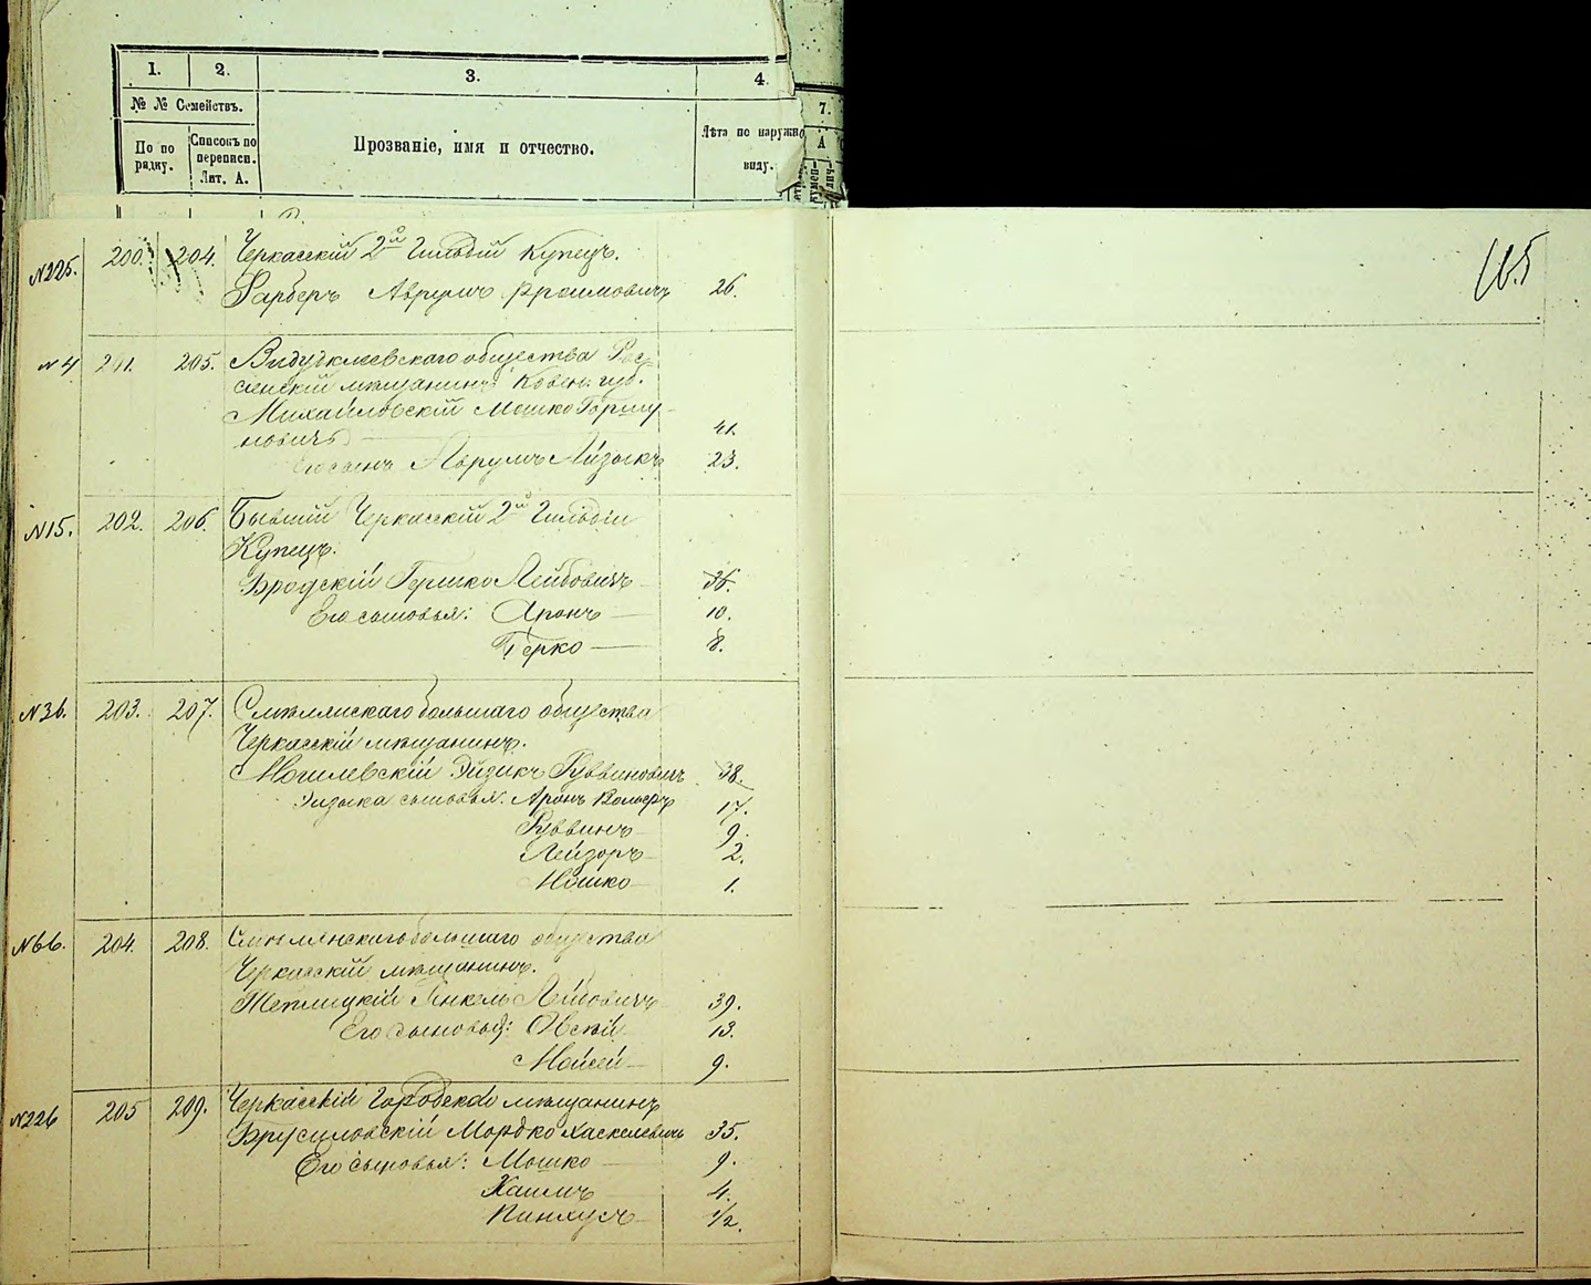 1. 2. 3. 4.
№ № Семействъ.
По порядку. Списокъ по переписи. Лит. А. Прозваніе, имя и отчество. Лѣта по наружно виду.
7.
А
165
N225. 200. 204. Черкасскій 2й Гильдіи Купецъ.
Фарберъ Аврумъ Фроимовичъ 26.
N4 201. 205. Видуклеевскаго общества Рос-
сіенскій мѣщанинъ Ковен. губ.
Михайловскій Мошко
новичъ 41.
Его сынъ Аврумъ Айзыкъ 23.
N15. 202. 206. Бывшій Черкасскій 2й Гильдіи
Купецъ.
Бродскій Гершко Лейбовичъ 36.
Его сыновья: Аронъ 10.
Берко 8.
N36. 203. 207. Смѣлянскаго большаго общества
Черкасскій мѣщанинъ.
Могилевскій Эйзикъ Рувиновичъ 38.
Эйзыка сыновья: Аронъ Вольфъ 17.
Руввинъ 9.
Лейзоръ 2.
Мошко 1.
N66. 204. 208. Смѣлянскаго большаго общества
Черкасскій мѣщанинъ.
Теплицкій Янкель 39.
Его сыновья: Овсѣй 13.
Мойсей 9.
N226 205 209. Черкасскій Городской мѣщанинъ
Брусиловскій Мордко Хаскелевичъ 35.
Его сыновья: Мошко 9.
Хаимъ 4.
Пинхусъ 1/2.